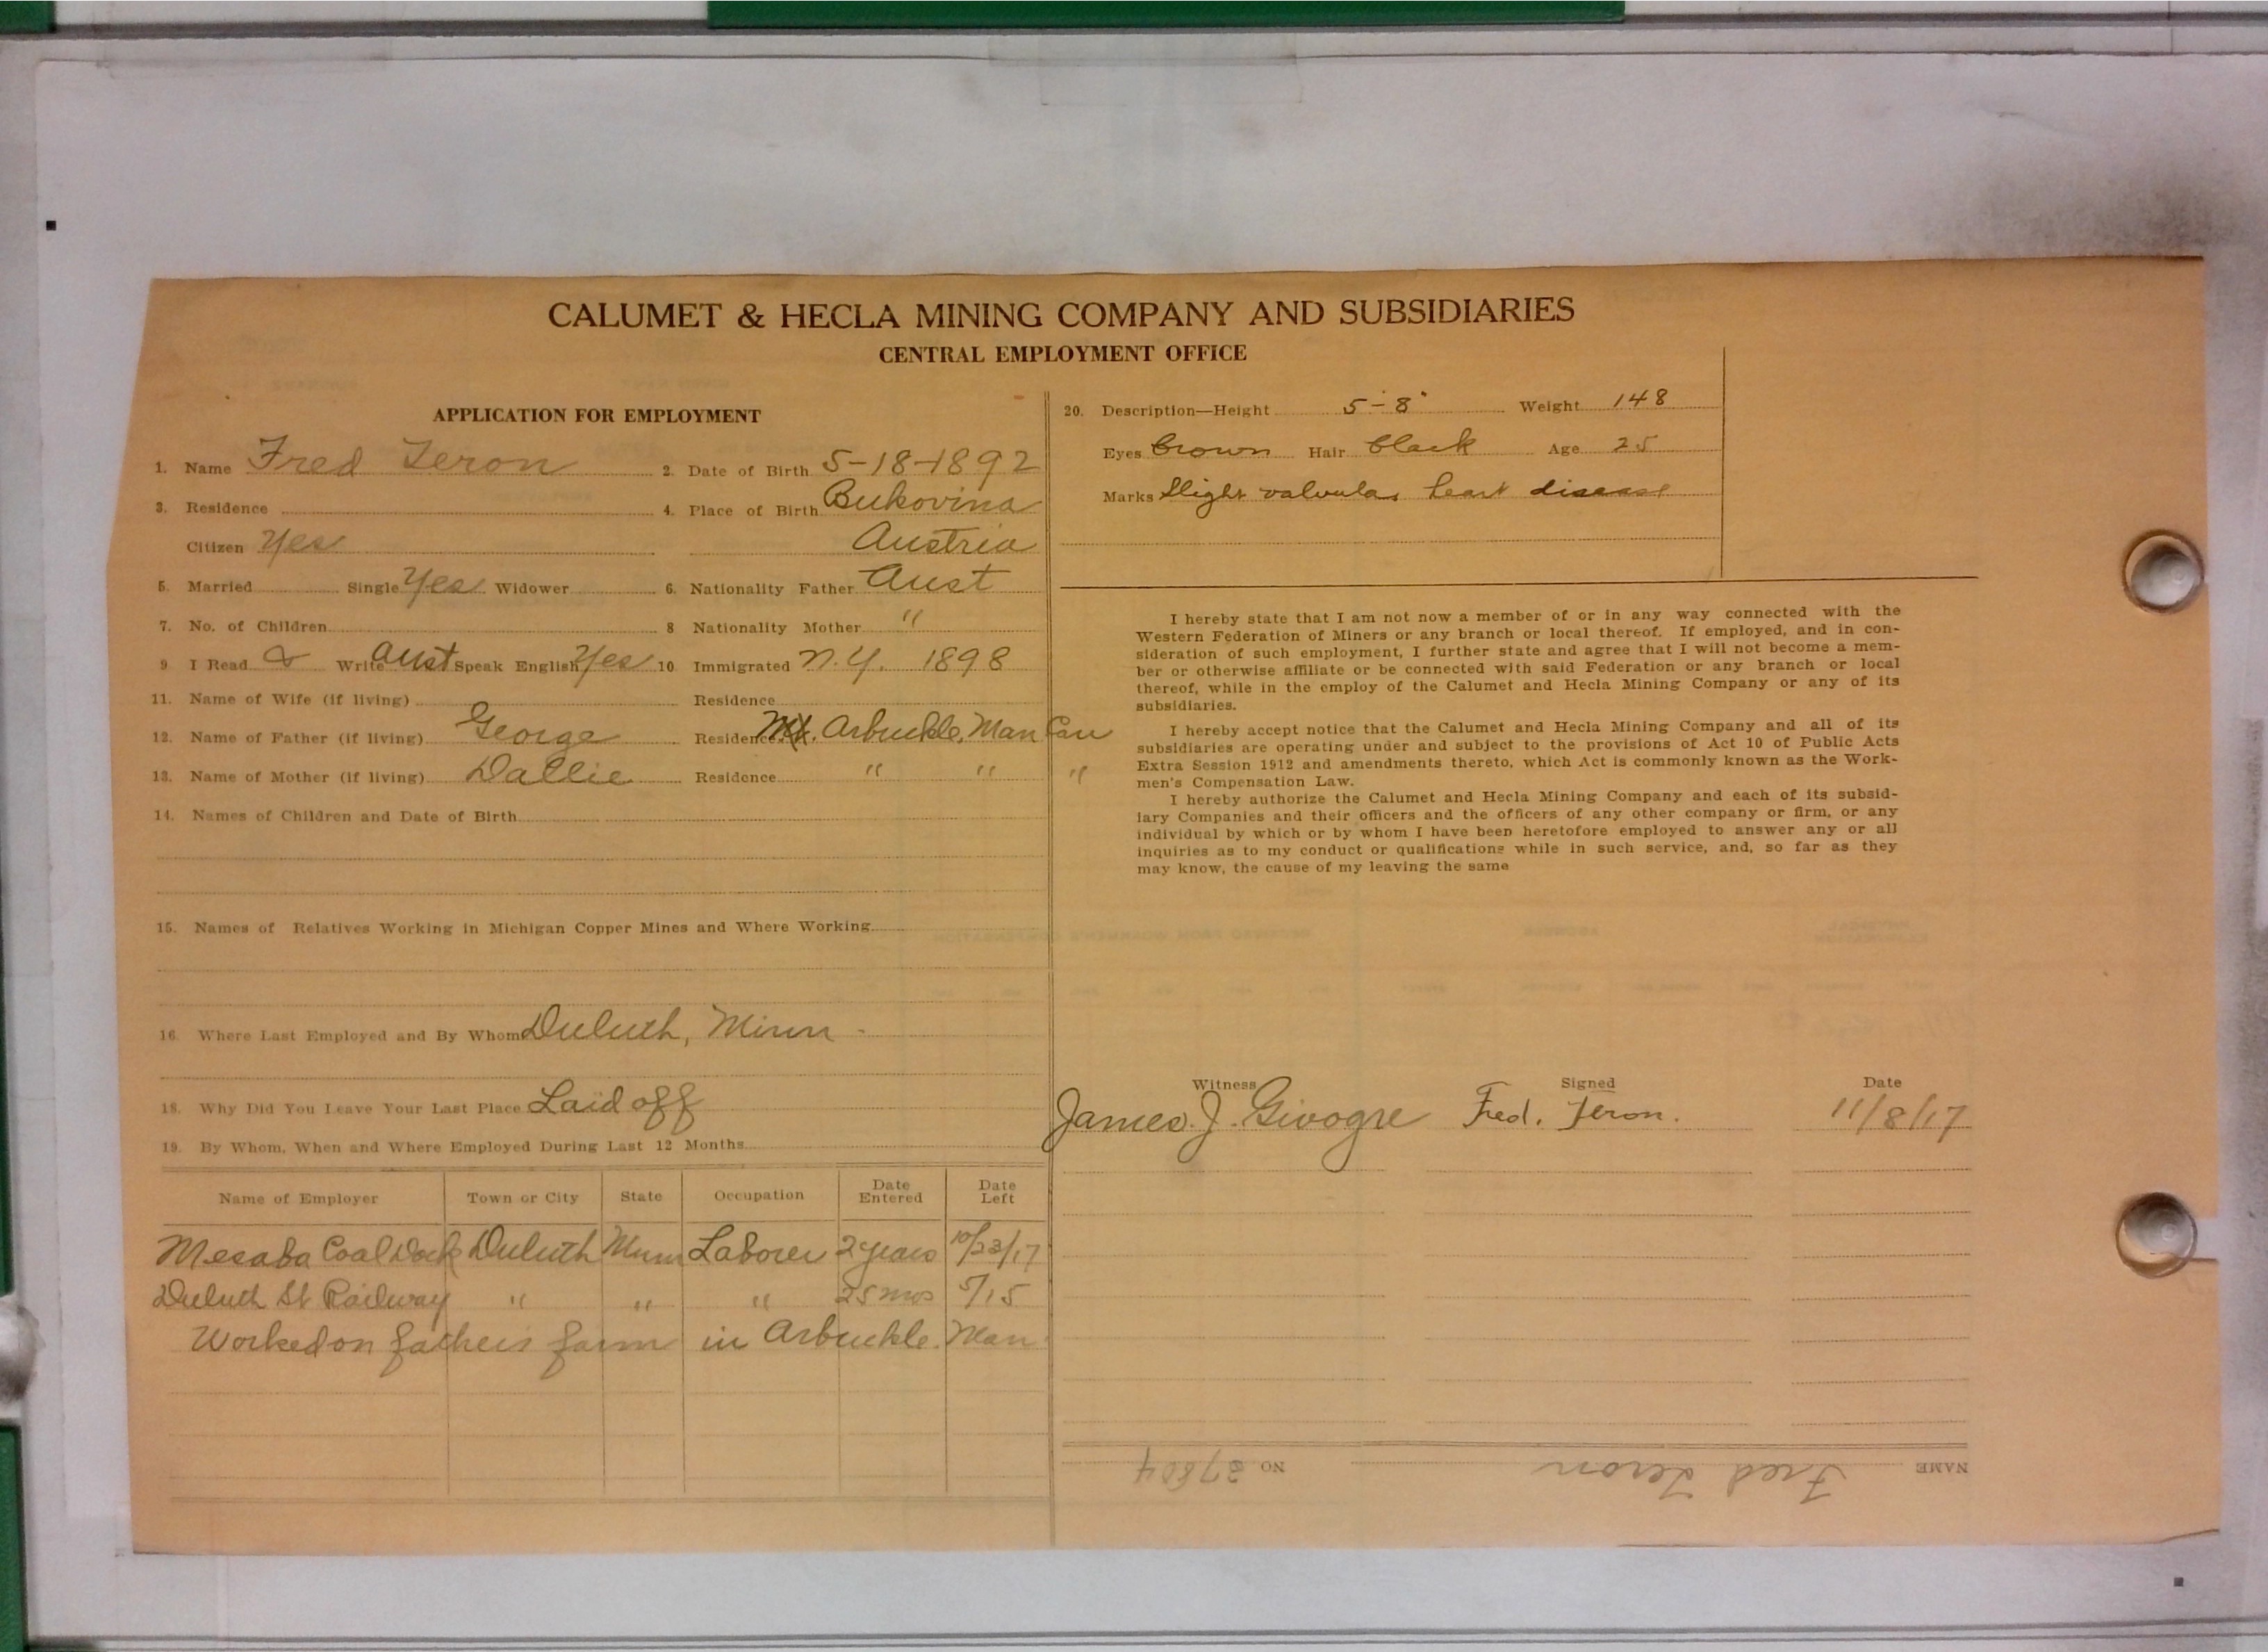 CALUMET & HECLA MINING COMPANY AND SUBSIDIARIES
CENTRAL EMPLOYMENT OFFICE
APPLICATION FOR EMPLOYMENT
1. Name Fred Teron 2. Date of Birth 5-18-1892
3. Residence 4. Place of Birth Bukovina
Citizen Yes Austria
5. Married Single Yes Widower 6. Nationality Father Aust
7. No. of Children 8 Nationality Mother "
9 I Read & Write Aust Speak English Yes 10 Immigrated N.Y. 1898
11. Name of Wife (if living) Residence
12. Name of Father (if living) George Residence Arbuckle, Man Can
13. Name of Mother (if living) Dallie Residence " " "
14. Names of Children and Date of Birth
15. Names of Relatives Working in Michigan Copper Mines and Where Working
16. Where Last Employed and By Whom Duluth, Minn -
18. Why Did You Leave Your Last Place Laid off
19. By Whom, When and Where Employed During Last 12 Months
Name of Employer Town or City State Occupation Date Entered Date Left
Mesaba Coal Dock Duluth Minn Laborer 2 years 10/23/17
Duluth St Railway " " " 25 mos 5/15
Worked on fathers farm in Arbuckle. Man
20. Description—Height 5-8" Weight 148
Eyes brown Hair black Age 25
Marks Slight valvular heart disease
I hereby state that I am not now a member of or in any way connected with the
Western Federation of Miners or any branch or local thereof. If employed, and in con-
sideration of such employment, I further state and agree that I will not become a mem-
ber or otherwise affiliate or be connected with said Federation or any branch or local
thereof, while in the employ of the Calumet and Hecla Mining Company or any of its
subsidiaries.
I hereby accept notice that the Calumet and Hecla Mining Company and all of its
subsidiaries are operating under and subject to the provisions of Act 10 of Public Acts
Extra Session 1912 and amendments thereto, which Act is commonly known as the Work-
men's Compensation Law.
I hereby authorize the Calumet and Hecla Mining Company and each of its subsid-
iary Companies and their officers and the officers of any other company or firm, or any
individual by which or by whom I have been heretofore employed to answer any or all
inquiries as to my conduct or qualifications while in such service, and, so far as they
may know, the cause of my leaving the same
Witness Signed Date
James. J. Givogre Fred. Teron. 11/8/17
NAME Fred Teron NO 27804